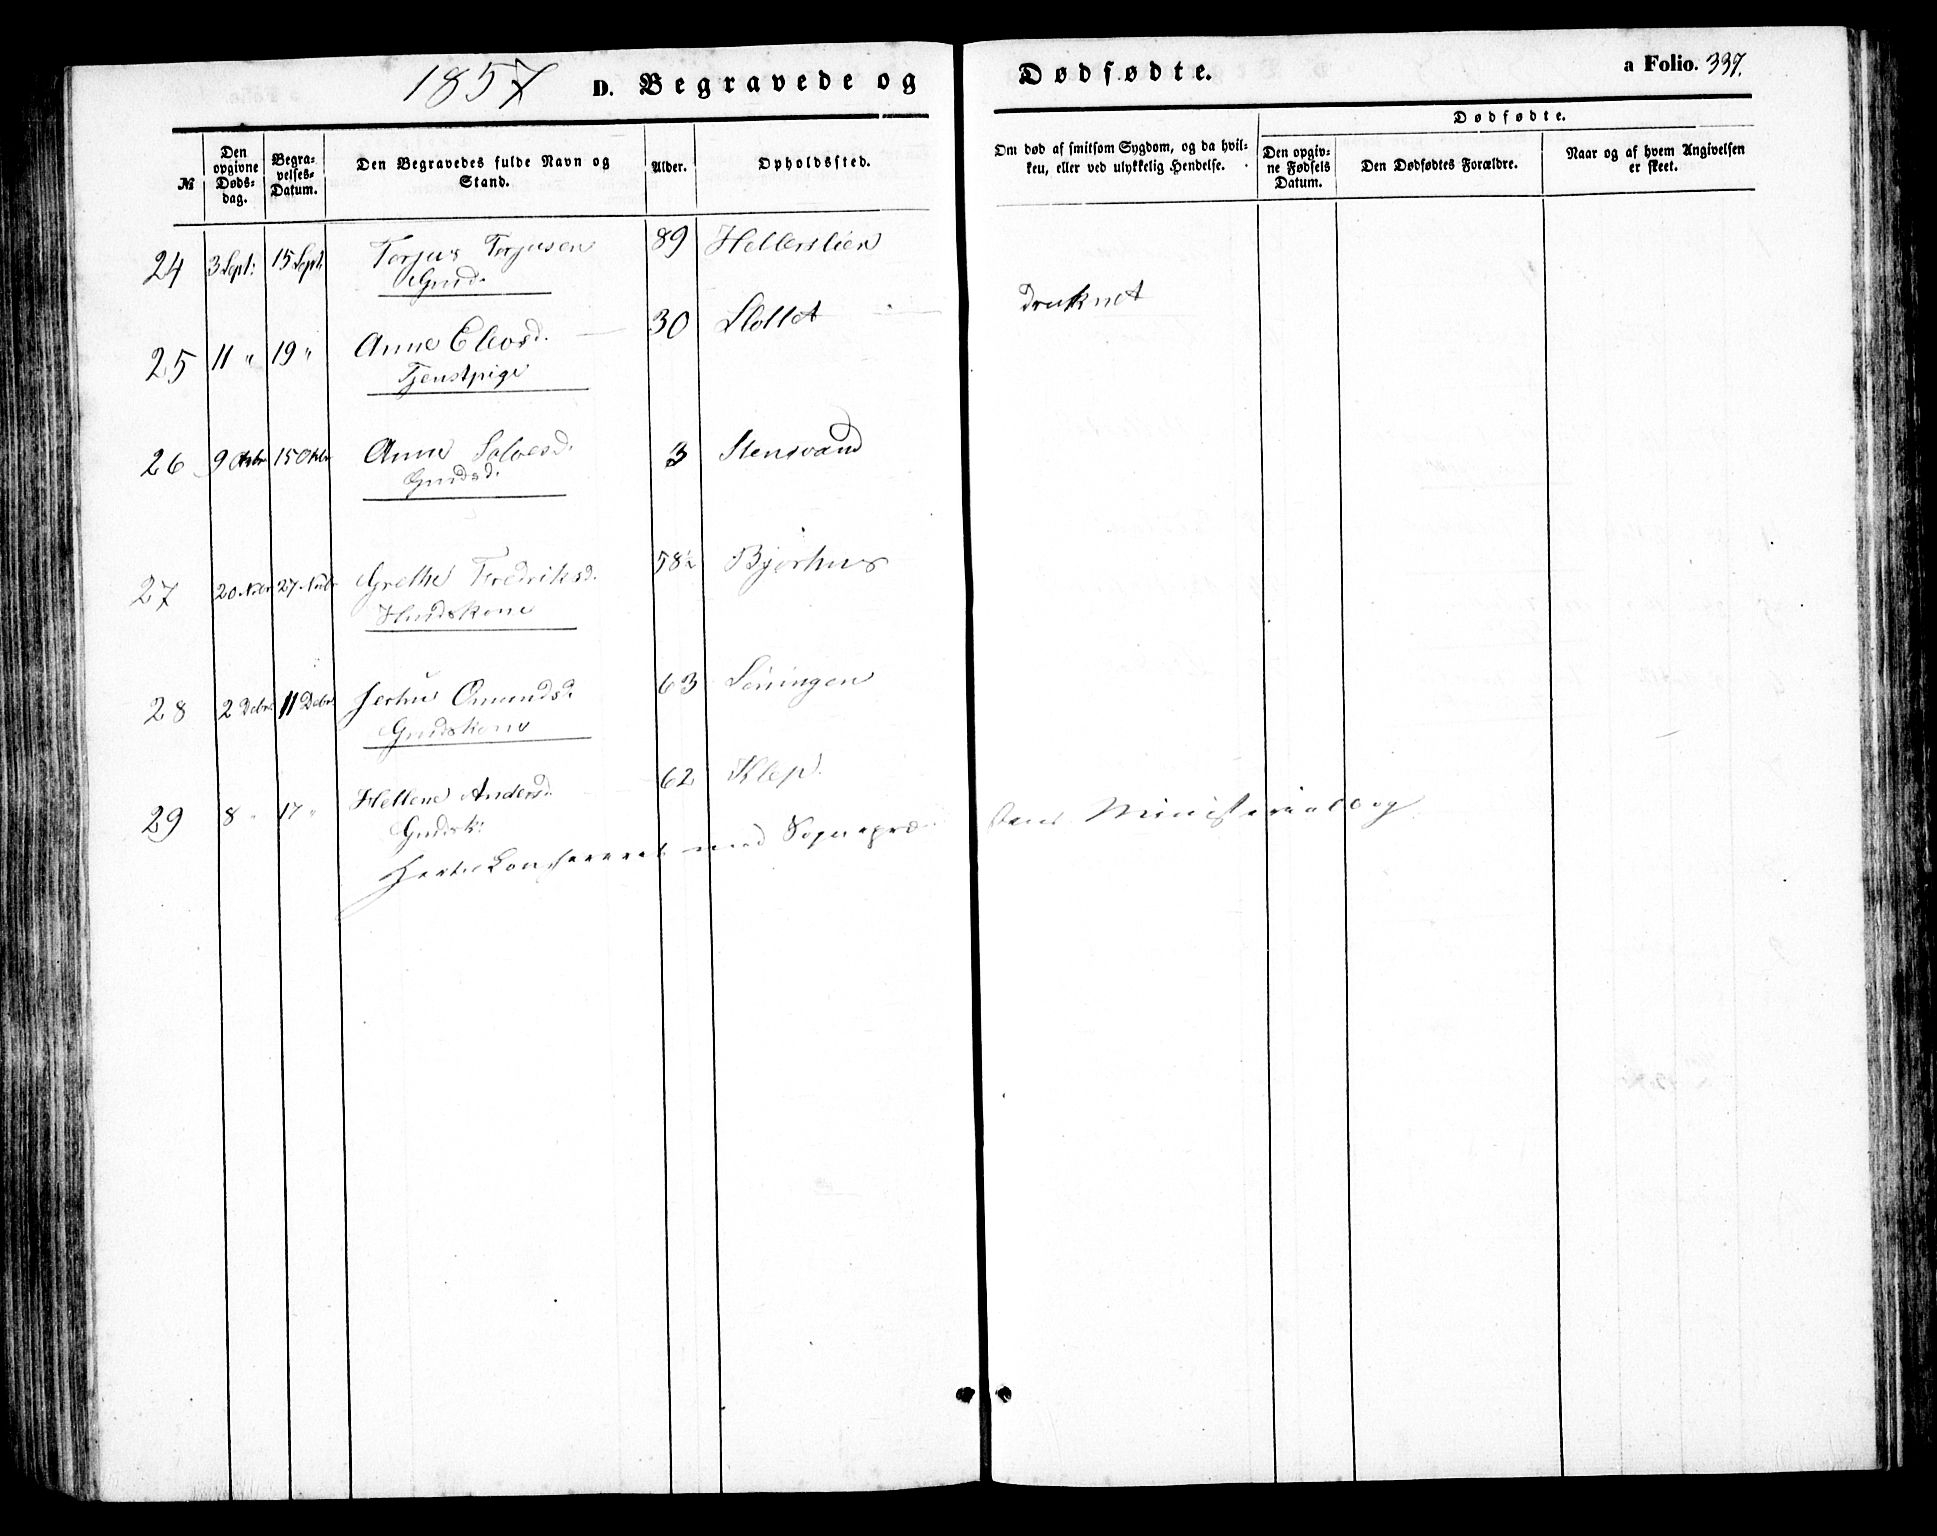 1857 D. Begravede og Dødsfødte. a Folio. 337.
Dødsfødte.
№ Den opgivne Dødsdag. Begravelses-Datum. Den Begravedes fulde Navn og Stand. Alder. Opholdssted. Om død af smitsom Sygdom, og da hvilken, eller ved ulykkelig Hendelse. Den opgivne Fødsels Datum. Den Dødsfødtes Forældre. Naar og af hvem Angivelsen er skeet.
24 3 Sept: 15 Sept: Torjus Torjusen 89 Hellerslien
Gmd.
25 11 " 19 " Anne Elevsd. 30 Slottet Druknet
Tjenstpige
26 9 Okbr 15 Okbr Anne Salvesd. 3 Stensvand
Gmdsd.
27 20 Nvbr 27 Nvbr Grethe Fredriksd. 58½ Bjørhus
Hmdskone
28 2 Debr 11 Debr Omundsd. 63
Gmdskone
29 8 " 17 " Hellene Andersd. 62 Klep.
Gmdsk:
med Sognepræstens Ministerialbog